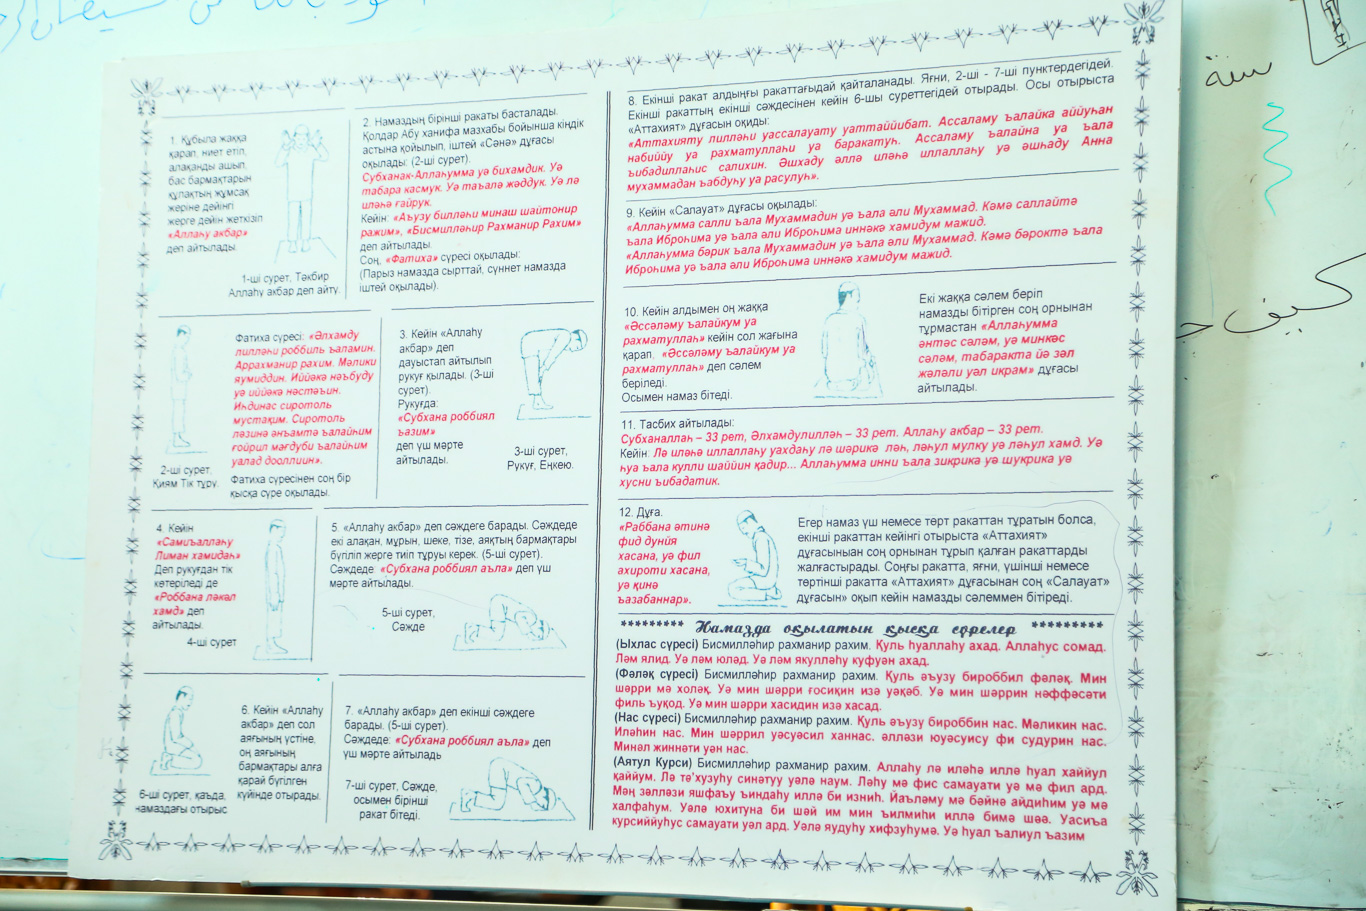 1. Құбыла жаққа
қарап, ниет етіп,
алақанды ашып,
бас бармақтарын
құлақтың жұмсақ
жеріне дейінгі
жерге дейін жеткізіп
«Аллаһу акбар»
деп айтылады.
1-ші сурет, Тәкбир
Аллаһу акбар деп айту.
2. Намаздың бірінші ракаты басталады.
Қолдар Абу ханифа мазхабы бойынша кіндік
астына қойылып, іштей «Сәнә» дұғасы
оқылады: (2-ші сурет).
Субханак-Аллаһумма уә бихамдик. Уә
табара касмук. Уә таъалә жәддук. Уә лә
иләһә ғайрук.
Кейін: «Аъузу билләһи минаш шайтонир
ражим», «Бисмилләһир Рахманир Рахим»
деп айтылады.
Соң, «Фатиха» сүресі оқылады:
(Парыз намазда сырттай, сүннет намазда
іштей оқылады).
2-ші сурет,
Қиям Тік тұру.
Фатиха сүресі: «Әлхамду
лилләһи роббиль ъаламин.
Аррахманир рахим. Мәлики
яумиддин. Иййәкә нәъбуду
уә иййәкә нәстәъин.
Иһдинас сиротоль
мустақим. Сиротоль
ләзинә әнъамтә ъалайһим
ғойрил мағдуби ъалайһим
уалад дооллиин».
Фатиха сүресінен соң бір
қысқа сүре оқылады.
3. Кейін «Аллаһу
акбар» деп
дауыстап айтылып
рукуғ қылады. (3-ші
сурет).
Рукуғда:
«Субхана роббиял
ъазим»
деп үш мәрте
айтылады.
3-ші сурет,
Рукуғ, Еңкею.
4. Кейін
«Самиъаллаһу
Лиман хамидаһ»
Деп рукуғдан тік
көтеріледі де
«Роббана ләкал
хамд» деп
айтылады.
4-ші сурет
5. «Аллаһу акбар» деп сәждеге барады. Сәждеде
екі алақан, мұрын, шеке, тізе, аяқтың бармақтары
бүгіліп жерге тиіп тұруы керек. (5-ші сурет).
Сәждеде: «Субхана роббиял аъла» деп үш
мәрте айтылады.
5-ші сурет,
Сәжде
6-ші сурет, қаъда,
намаздағы отырыс
6. Кейін «Аллаһу
акбар» деп сол
аяғының үстіне,
оң аяғының
бармақтары алға
қарай бүгілген
күйінде отырады.
7. «Аллаһу акбар» деп екінші сәждеге
барады. (5-ші сурет).
Сәждеде: «Субхана роббиял аъла» деп
үш мәрте айтыладь
7-ші сурет, Сәжде,
осымен бірінші
ракат бітеді.
8. Екінші ракат алдыңғы ракаттағыдай қайталанады. Яғни, 2-ші - 7-ші пунктердегідей.
Екінші ракаттың екінші сәждесінен кейін 6-шы суреттегідей отырады. Осы отырыста
«Аттахият» дұғасын оқиды:
«Аттахияту лилләһи уассалауату уаттаййибат. Ассаламу ъалайка аййуһан
нәбиййу уа рахматуллаһи уа баракатуһ. Ассаламу ъалайна уа ъала
ъибадиллаһис салихин. Әшхаду әллә иләһә иллаллаһу уә әшһаду Анна
мухаммадан ъабдуһу уа расулуһ».
9. Кейін «Салауат» дұғасы оқылады:
«Аллаһумма салли ъала Мухаммадин уә ъала әли Мухаммад. Кәмә саллайтә
ъала Иброһима уә ъала әли Иброһима иннәкә хамидум мажид.
«Аллаһумма бәрик ъала Мухаммадин уә ъала әли Мухаммад. Кәмә бәроктә ъала
Иброһима уә ъала әли Иброһима иннәкә хамидум мажид.
10. Кейін алдымен оң жаққа
«Әссәләму ъалайкум уа
рахматуллаһ» кейін сол жағына
қарап, «Әссәләму ъалайкум уа
рахматуллаһ» деп сәлем
беріледі.
Осымен намаз бітеді.
Екі жаққа сәлем беріп
намазды бітірген соң орнынан
тұрмастан «Аллаһумма
әнтәс сәләм, уә минкәс
сәләм, табаракта йә зәл
жәләли уәл икрам» дұғасы
айтылады.
11. Тасбих айтылады:
Субханаллаһ – 33 рет, Әлхамдулилләһ – 33 рет. Аллаһу акбар – 33 рет.
Кейін: Лә иләһә иллаллаһу уахдаһу лә шәрикә ләһ, ләһул мулку уә ләһул хамд. Уә
һуа ъала кулли шаййин қадир... Аллаһумма инни ъала зикрика уә шукрика уә
хусни ъибадатик.
12. Дұға.
«Раббана әтинә
фид дунйя
хасана, уә фил
ахироти хасана,
уә қинә
ъазабаннар».
Егер намаз үш немесе төрт ракаттан тұратын болса,
екінші ракаттан кейінгі отырыста «Аттахият»
дұғасыныан соң орнынан тұрып қалған ракаттарды
жалғастырады. Соңғы ракатта, яғни, үшінші немесе
төртінші ракатта «Аттахият» дұғасынан соң «Салауат»
дұғасын» оқып кейін намазды сәлеммен бітіреді.
********* Намазда оқылатын қысқа сүрелер *********
(Ыхлас сүресі) Бисмилләһир рахманир рахим. Қуль һуаллаһу ахад. Аллаһус сомад.
Ләм ялид. Уә ләм юләд. Уә ләм якулләһу куфуән ахад.
(Фәләқ сүресі) Бисмилләһир рахманир рахим. Қуль әъузу бироббил фәләқ. Мин
шәрри мә холәқ. Уә мин шәрри ғосиқин изә уәқәб. Уә мин шәррин нәффәсәти
филь ъуқод. Уә мин шәрри хасидин изә хасад.
(Нас сүресі) Бисмилләһир рахманир рахим. Қуль әъузу бироббин нас. Мәликин нас.
Иләһин нас. Мин шәррил уәсуәсил ханнас. әлләзи юуәсуису фи судурин нас.
Минәл жиннәти уән нас.
(Аятул Курси) Бисмилләһир рахманир рахим. Аллаһу лә иләһә иллә һуал хаййул
қаййум. Лә те'хузуһу синәтуу уәлә наум. Ләһу мә фис самауати уә мә фил ард.
Мәң зәлләзи яшфаъу ъиндаһу иллә би изниһ. Йаъләму мә бәйнә айдиһим уә мә
халфаһум. Уәлә юхитуна би шәй им мин ъилмиһи иллә бимә шәә. Уасиъа
курсиййуһус самауати уәл ард. Уәлә яудуһу хифзуһумә. Уә һуал ъалиул ъазим
سنة
كيف